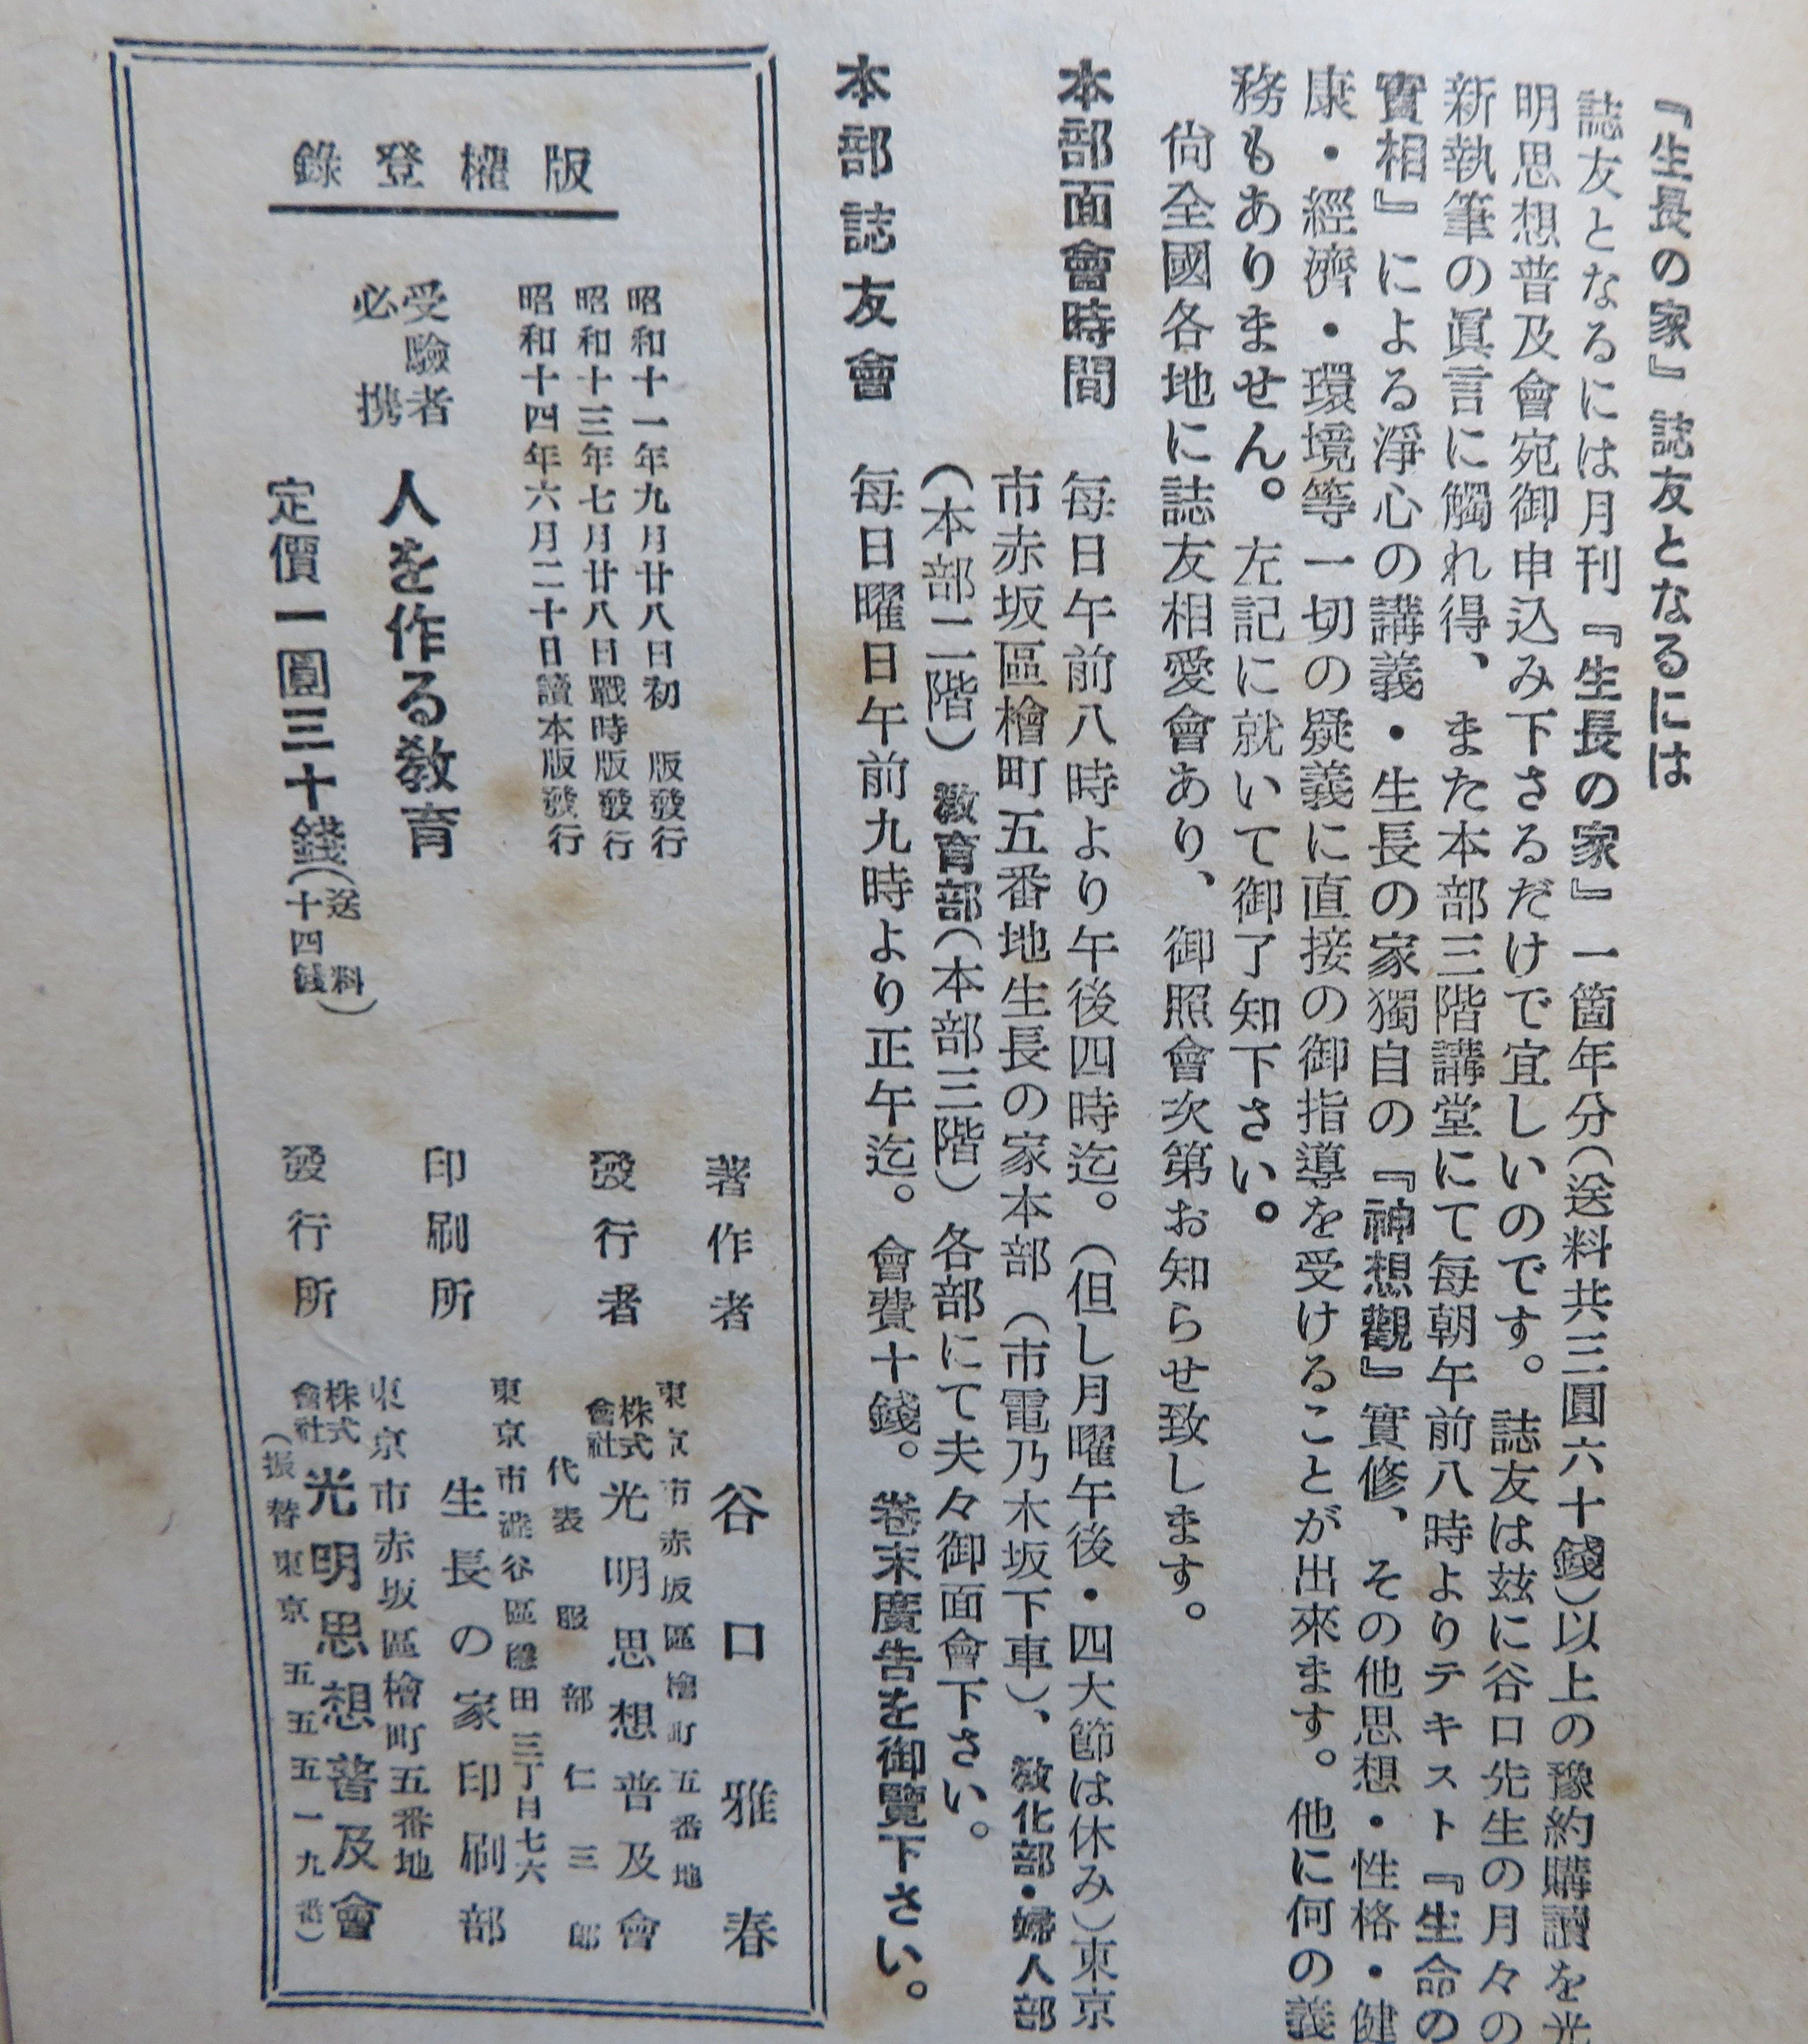 『生長の家』誌友となるには
誌友となるには月刊『生長の家』一箇年分(送料共三圓六十錢)以上の豫約購讀を光
明思想普及會宛御申込み下さるだけで宜しいのです。誌友は玆に谷口先生の月々の
新執筆の眞言に觸れ得、また本部三階講堂にて每朝午前八時よりテキスト『生命の
實相』による淨心の講義・生長の家獨自の『神想觀』實修、その他思想・性格・健
康・經濟・環境等一切の疑義に直接の御指導を受けることが出來ます。他に何の義
務もありません。左記に就いて御了知下さい。
尙全國各地に誌友相愛會あり、御照會次第お知らせ致します。
本部面會時間 每日午前八時より午後四時迄。(但し月曜午後・四大節は休み)東京
市赤坂區檜町五番地生長の家本部(市電乃木坂下車)、敎化部・婦人部
(本部二階)敎育部(本部三階)各部にて夫々御面會下さい。
本部誌友會 每日曜日午前九時より正午迄。會費十錢。卷末廣告を御覽下さい。
版權登錄
昭和十一年九月廿八日初 版發行
昭和十三年七月廿八日戰時版發行
昭和十四年六月二十日讀本版發行
受驗者
必携
人を作る敎育
定價一圓三十錢(送料十四錢)
著作者 谷口雅春
東京市赤坂區檜町五番地
發行者 株式會社 光明思想普及會
代表 服部仁三郎
東京市澁谷區隱田三丁目七六
印刷所 生長の家印刷部
東京市赤坂區檜町五番地
發行所 株式會社 光明思想普及會
(振替東京五五五一九番)